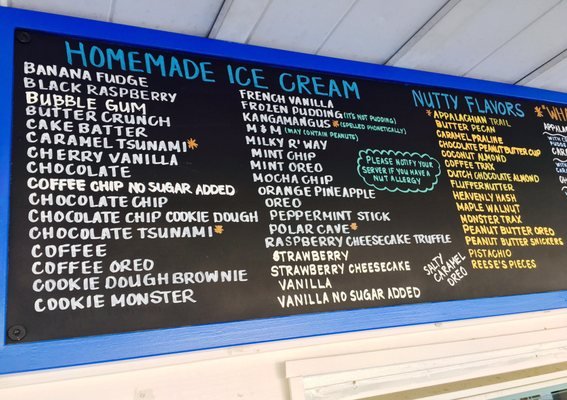 HOMEMADE ICE CREAM
BANANA FUDGE
BLACK RASPBERRY
BUBBLE GUM
BUTTER CRUNCH
CAKE BATTER
CARAMEL TSUNAMI*
CHERRY VANILLA
CHOCOLATE
COFFEE CHIP NO SUGAR ADDED
CHOCOLATE CHIP
CHOCOLATE CHIP COOKIE DOUGH
CHOCOLATE TSUNAMI*
COFFEE
COFFEE OREO
COOKIE DOUGH BROWNIE
COOKIE MONSTER
FRENCH VANILLA
FROZEN PUDDING (IT'S NOT PUDDING)
KANGAMANGUS *(SPELLED PHONETICALLY)
M & M (MAY CONTAIN PEANUTS)
MILKY R' WAY
MINT CHIP
MINT OREO
MOCHA CHIP
ORANGE PINEAPPLE
OREO
PEPPERMINT STICK
POLAR CAVE*
RASPBERRY CHEESECAKE TRUFFLE
STRAWBERRY
STRAWBERRY CHEESECAKE
VANILLA
VANILLA NO SUGAR ADDED
PLEASE NOTIFY YOUR
SERVER IF YOU HAVE A
NUT ALLERGY
NUTTY FLAVORS
*APPALACHIAN TRAIL
BUTTER PECAN
CARAMEL PRALINE
CHOCOLATE PEANUT BUTTER CUP
COCONUT ALMOND
COFFEE TRAX
DUTCH CHOCOLATE ALMOND
FLUFFERNUTTER
HEAVENLY HASH
MAPLE WALNUT
MONSTER TRAX
PEANUT BUTTER OREO
PEANUT BUTTER SNICKERS
PISTACHIO
REESE'S PIECES
SALTY
CARAMEL
OREO